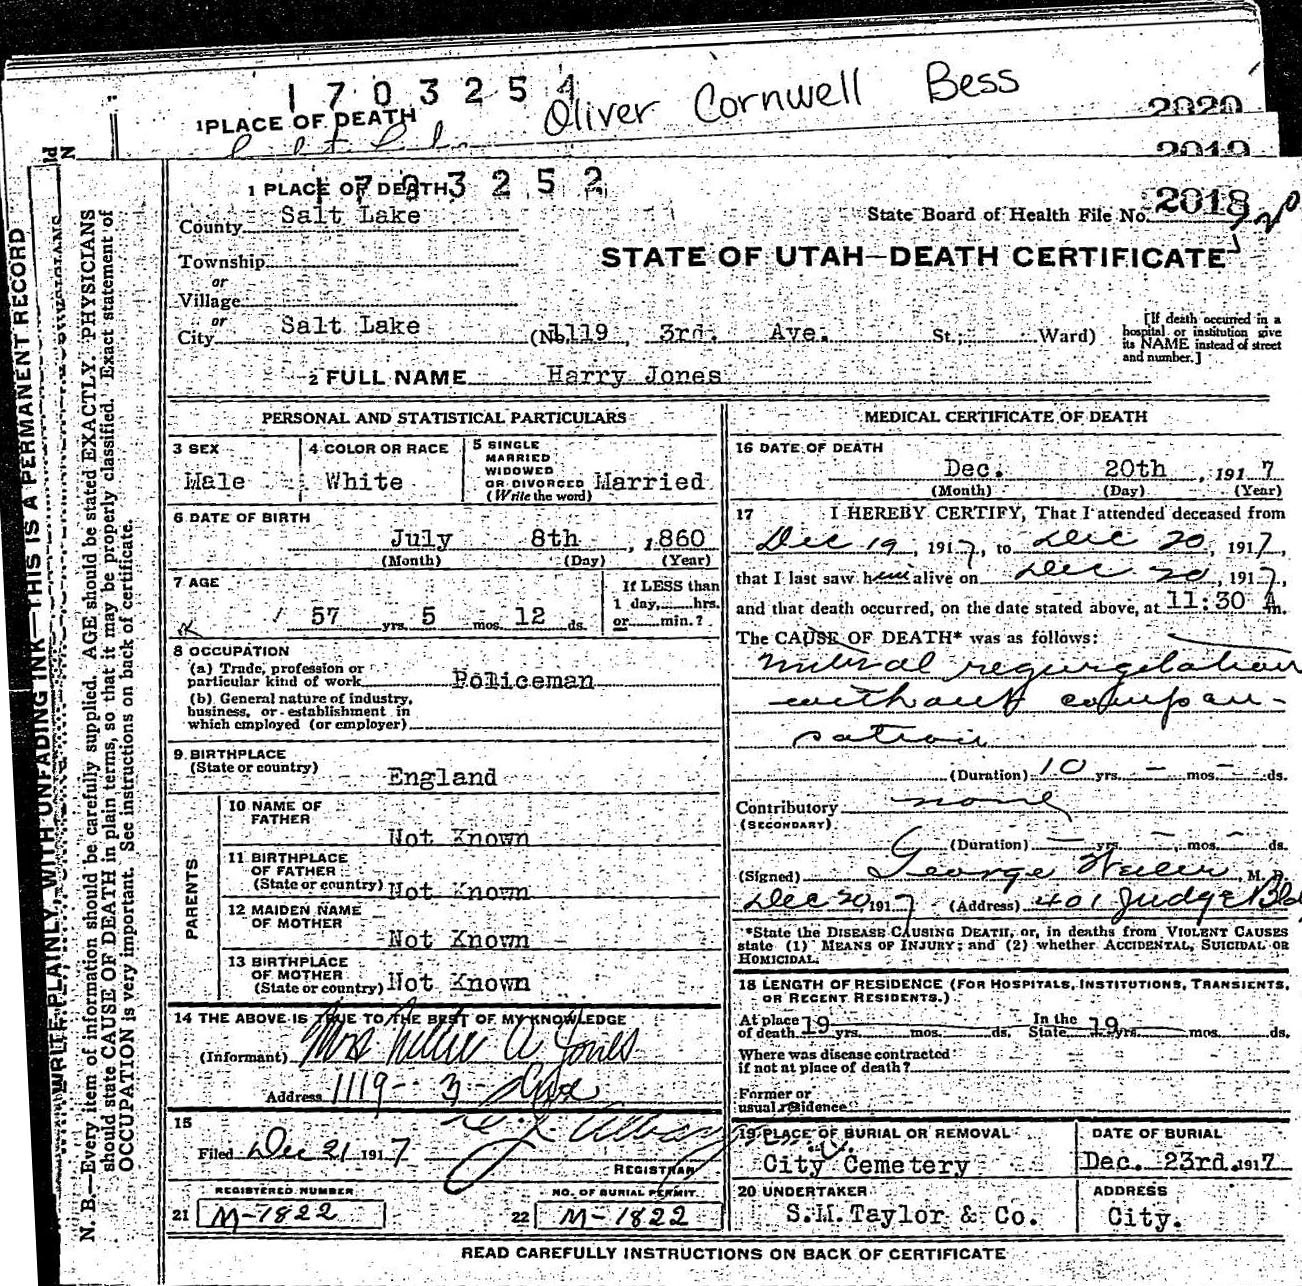 1703254
Oliver Cornwell Bess
2020
1 PLACE OF DEATH
2019
1703252
1 PLACE OF DEATH
State Board of Health File No. 2018
County Salt Lake
STATE OF UTAH—DEATH CERTIFICATE
Township
or
Village
or
City Salt Lake (No. 1119 3rd. Ave. St.; Ward)
[If death occurred in a hospital or institution give its NAME instead of street and number.]
2 FULL NAME Harry Jones
PERSONAL AND STATISTICAL PARTICULARS
3 SEX Male
4 COLOR OR RACE White
5 SINGLE MARRIED WIDOWED OR DIVORCED (Write the word) Married
6 DATE OF BIRTH
July 8th, 1860
(Month) (Day) (Year)
7 AGE
57 yrs. 5 mos. 12 ds.
If LESS than 1 day, hrs. or min.?
8 OCCUPATION
(a) Trade, profession or particular kind of work Policeman
(b) General nature of industry, business, or establishment in which employed (or employer)
9 BIRTHPLACE
(State or country) England
PARENTS
10 NAME OF FATHER Not Known
11 BIRTHPLACE OF FATHER (State or country) Not Known
12 MAIDEN NAME OF MOTHER Not Known
13 BIRTHPLACE OF MOTHER (State or country) Not Known
14 THE ABOVE IS TRUE TO THE BEST OF MY KNOWLEDGE
(Informant) Mrs Nellie A Jones
Address 1119 - 3 - Ave
15
Filed Dec 21 1917
REGISTRAR
REGISTERED NUMBER
21 M-1822
NO. OF BURIAL PERMIT.
22 M-1822
MEDICAL CERTIFICATE OF DEATH
16 DATE OF DEATH
Dec. 20th, 1917
(Month) (Day) (Year)
17 I HEREBY CERTIFY, That I attended deceased from
Dec 19, 1917, to Dec 20, 1917,
that I last saw him alive on Dec 20, 1917,
and that death occurred, on the date stated above, at 11:30 A.m.
The CAUSE OF DEATH* was as follows:
mitral regurgitation
without compen-
sation
(Duration) 10 yrs. - mos - ds.
Contributory none
(SECONDARY)
(Duration) - yrs. - mos. - ds.
(Signed) George M. D.
Dec 20, 1917 (Address) 401 Judge Bld
*State the DISEASE CAUSING DEATH, or, in deaths from VIOLENT CAUSES
state (1) MEANS OF INJURY; and (2) whether ACCIDENTAL, SUICIDAL OR
HOMICIDAL.
18 LENGTH OF RESIDENCE (FOR HOSPITALS, INSTITUTIONS, TRANSIENTS,
OR RECENT RESIDENTS.)
At place of death 19 yrs. mos. ds. In the State 19 yrs. mos. ds.
Where was disease contracted
if not at place of death?
Former or
usual residence
19 PLACE OF BURIAL OR REMOVAL
City Cemetery
DATE OF BURIAL
Dec. 23rd. 1917
20 UNDERTAKER
S.M. Taylor & Co.
ADDRESS
City.
READ CAREFULLY INSTRUCTIONS ON BACK OF CERTIFICATE
WRITE PLAINLY, WITH UNFADING INK—THIS IS A PERMANENT RECORD
N. B.—Every item of information should be carefully supplied. AGE should be stated EXACTLY. PHYSICIANS
should state CAUSE OF DEATH in plain terms, so that it may be properly classified. Exact statement of
OCCUPATION is very important. See instructions on back of certificate.